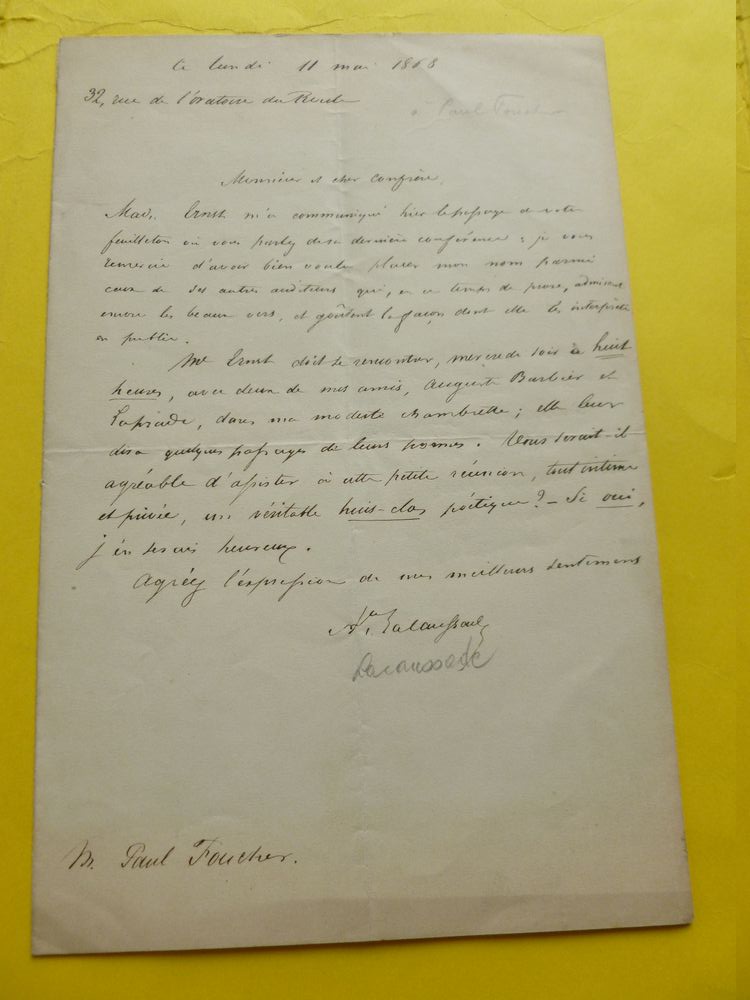 Ce lundi 11 mai 1868
32, rue de l'oratoire du Roule
à Paul Foucher
Monsieur et cher confrère,
Mad. Ernst m'a communiqué hier le passage de votre
feuilleton où vous parlez de sa dernière conférence ; je vous
remercie d'avoir bien voulu placer mon nom parmi
ceux de ses autres auditeurs qui, en ce temps de prose, admirent
encore les beaux vers, et goûtent la façon dont elle les interprète
en public.
Me Ernst doit se rencontrer, mercredi soir à huit
heures, avec deux de mes amis, Auguste Barbier et
Laprade, dans ma modeste chambrette ; elle leur
dira quelques passages de leurs poèmes. Vous serait-il
agréable d'assister à cette petite réunion, tout intime
et privée, un véritable huis-clos poétique ? — Si oui,
j'en serais heureux.
Agréez l'expression de mes meilleurs sentiments
Ate Lacaussade
Lacaussade
M. Paul Foucher.